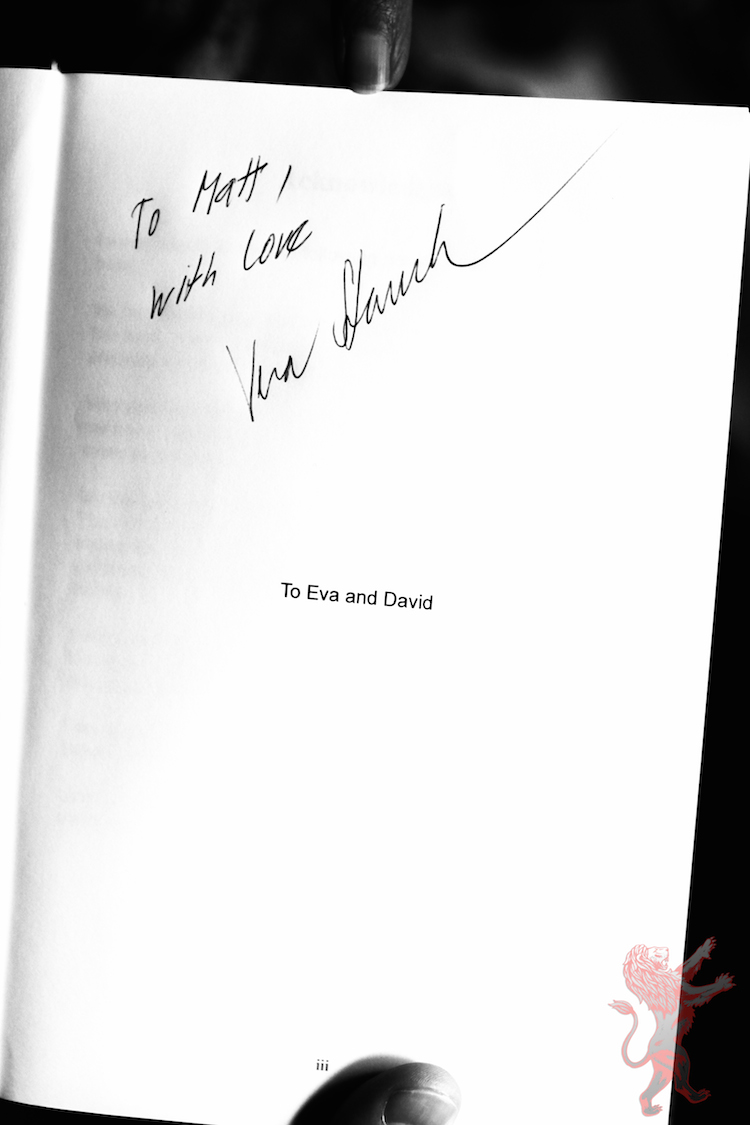 To Matt,
with Love
Vera
To Eva and David
iii